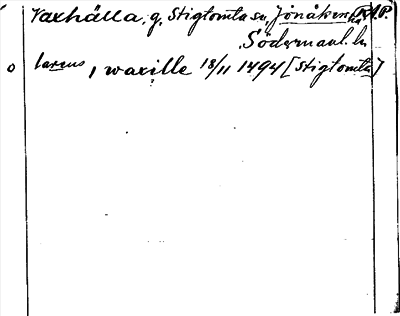 Vaxhälla, g. Stigtomta sn, Jönåkers hd R.A.P.
Södermanl. l.
o larens, i waxille 18/11 1494 [Stigtomta]